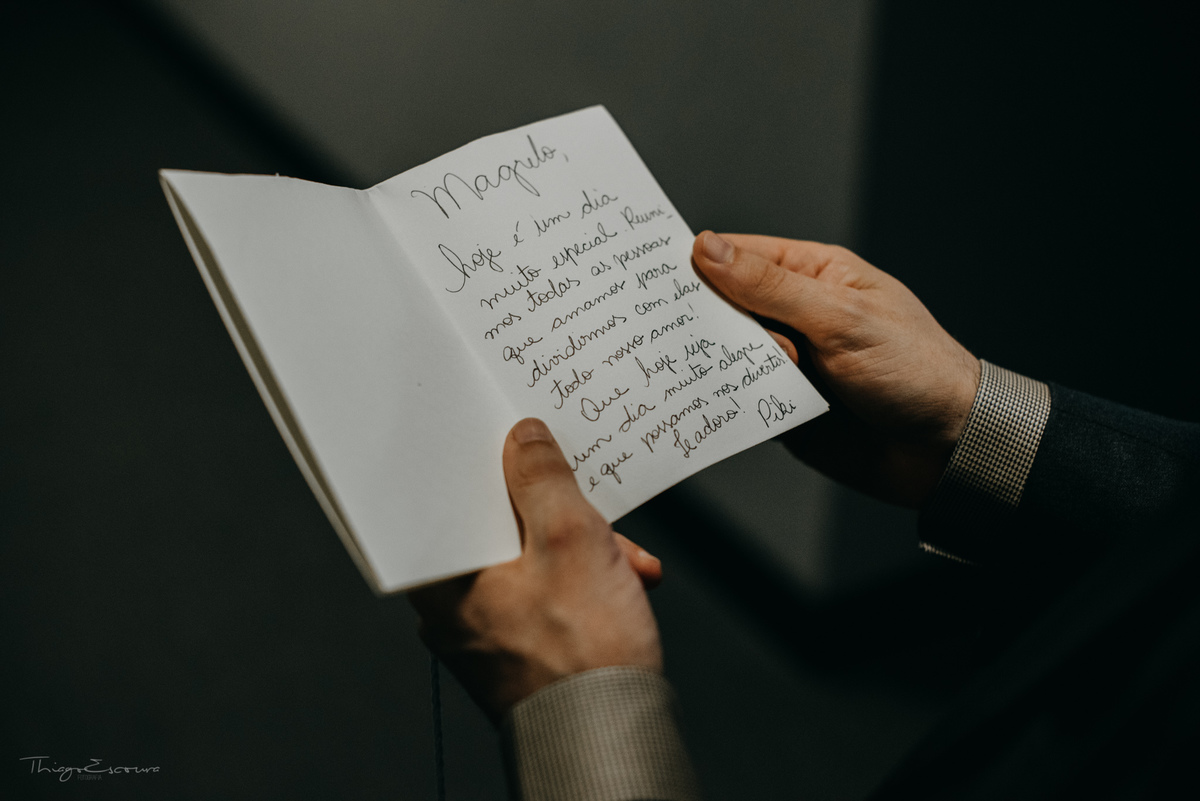 Magrelo,
hoje é um dia
muito especial. Reuni-
mos todas as pessoas
que amamos para
dividirmos com elas
todo nosso amor!
Que hoje seja
um dia muito alegre
e que possamos nos divertir!
Te adoro! Piki
Thiago Escoura
FOTOGRAFIA